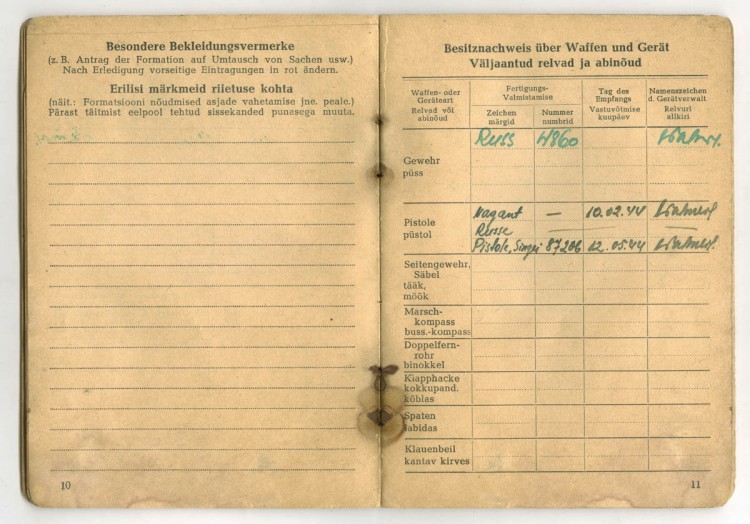 Besondere Bekleidungsvermerke
(z. B. Antrag der Formation auf Umtausch von Sachen usw.)
Nach Erledigung vorseitige Eintragungen in rot ändern.
Erilisi märkmeid riietuse kohta
(näit.: Formatsiooni nõudmised asjade vahetamise jne. peale.)
Pärast täitmist eelpool tehtud sissekanded punasega muuta.
10
Besitznachweis über Waffen und Gerät
Väljaantud relvad ja abinõud
Waffen- oder
Geräteart
Relvad või
abinõud
Fertigungs-
Valmistamise
Zeichen
märgid
Nummer
numbrid
Tag des
Empfangs
Vastuvõtmise
kuupäev
Namenszeichen
d. Gerätverwalt
Relvuri
allkiri
Gewehr
püss
Russ 4860
Pistole
püstol
Nagant — 10.02.44
Russe
Pistole, 87206 12.05.44
Seitengewehr,
Säbel
tääk,
mõõk
Marsch-
kompass
buss.-kompass
Doppelfern-
rohr
binokkel
Klapphacke
kokkupand.
kõblas
Spaten
labidas
Klauenbeil
kantav kirves
11